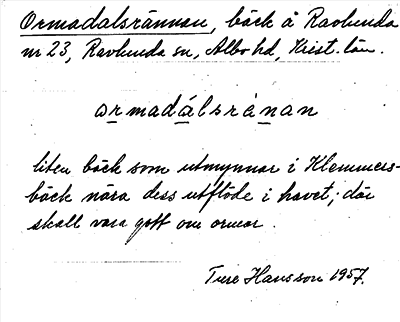 Ormadalsrännan, bäck å Ravlunda
nr 23, Ravlunda sn, Albo hd, Krist. län.
ormadálsrànan
liten bäck som utmynnar i Klemmers-
bäck nära dess utflöde i havet; där
skall vara gott om ormar.
Ture Hansson 1957.